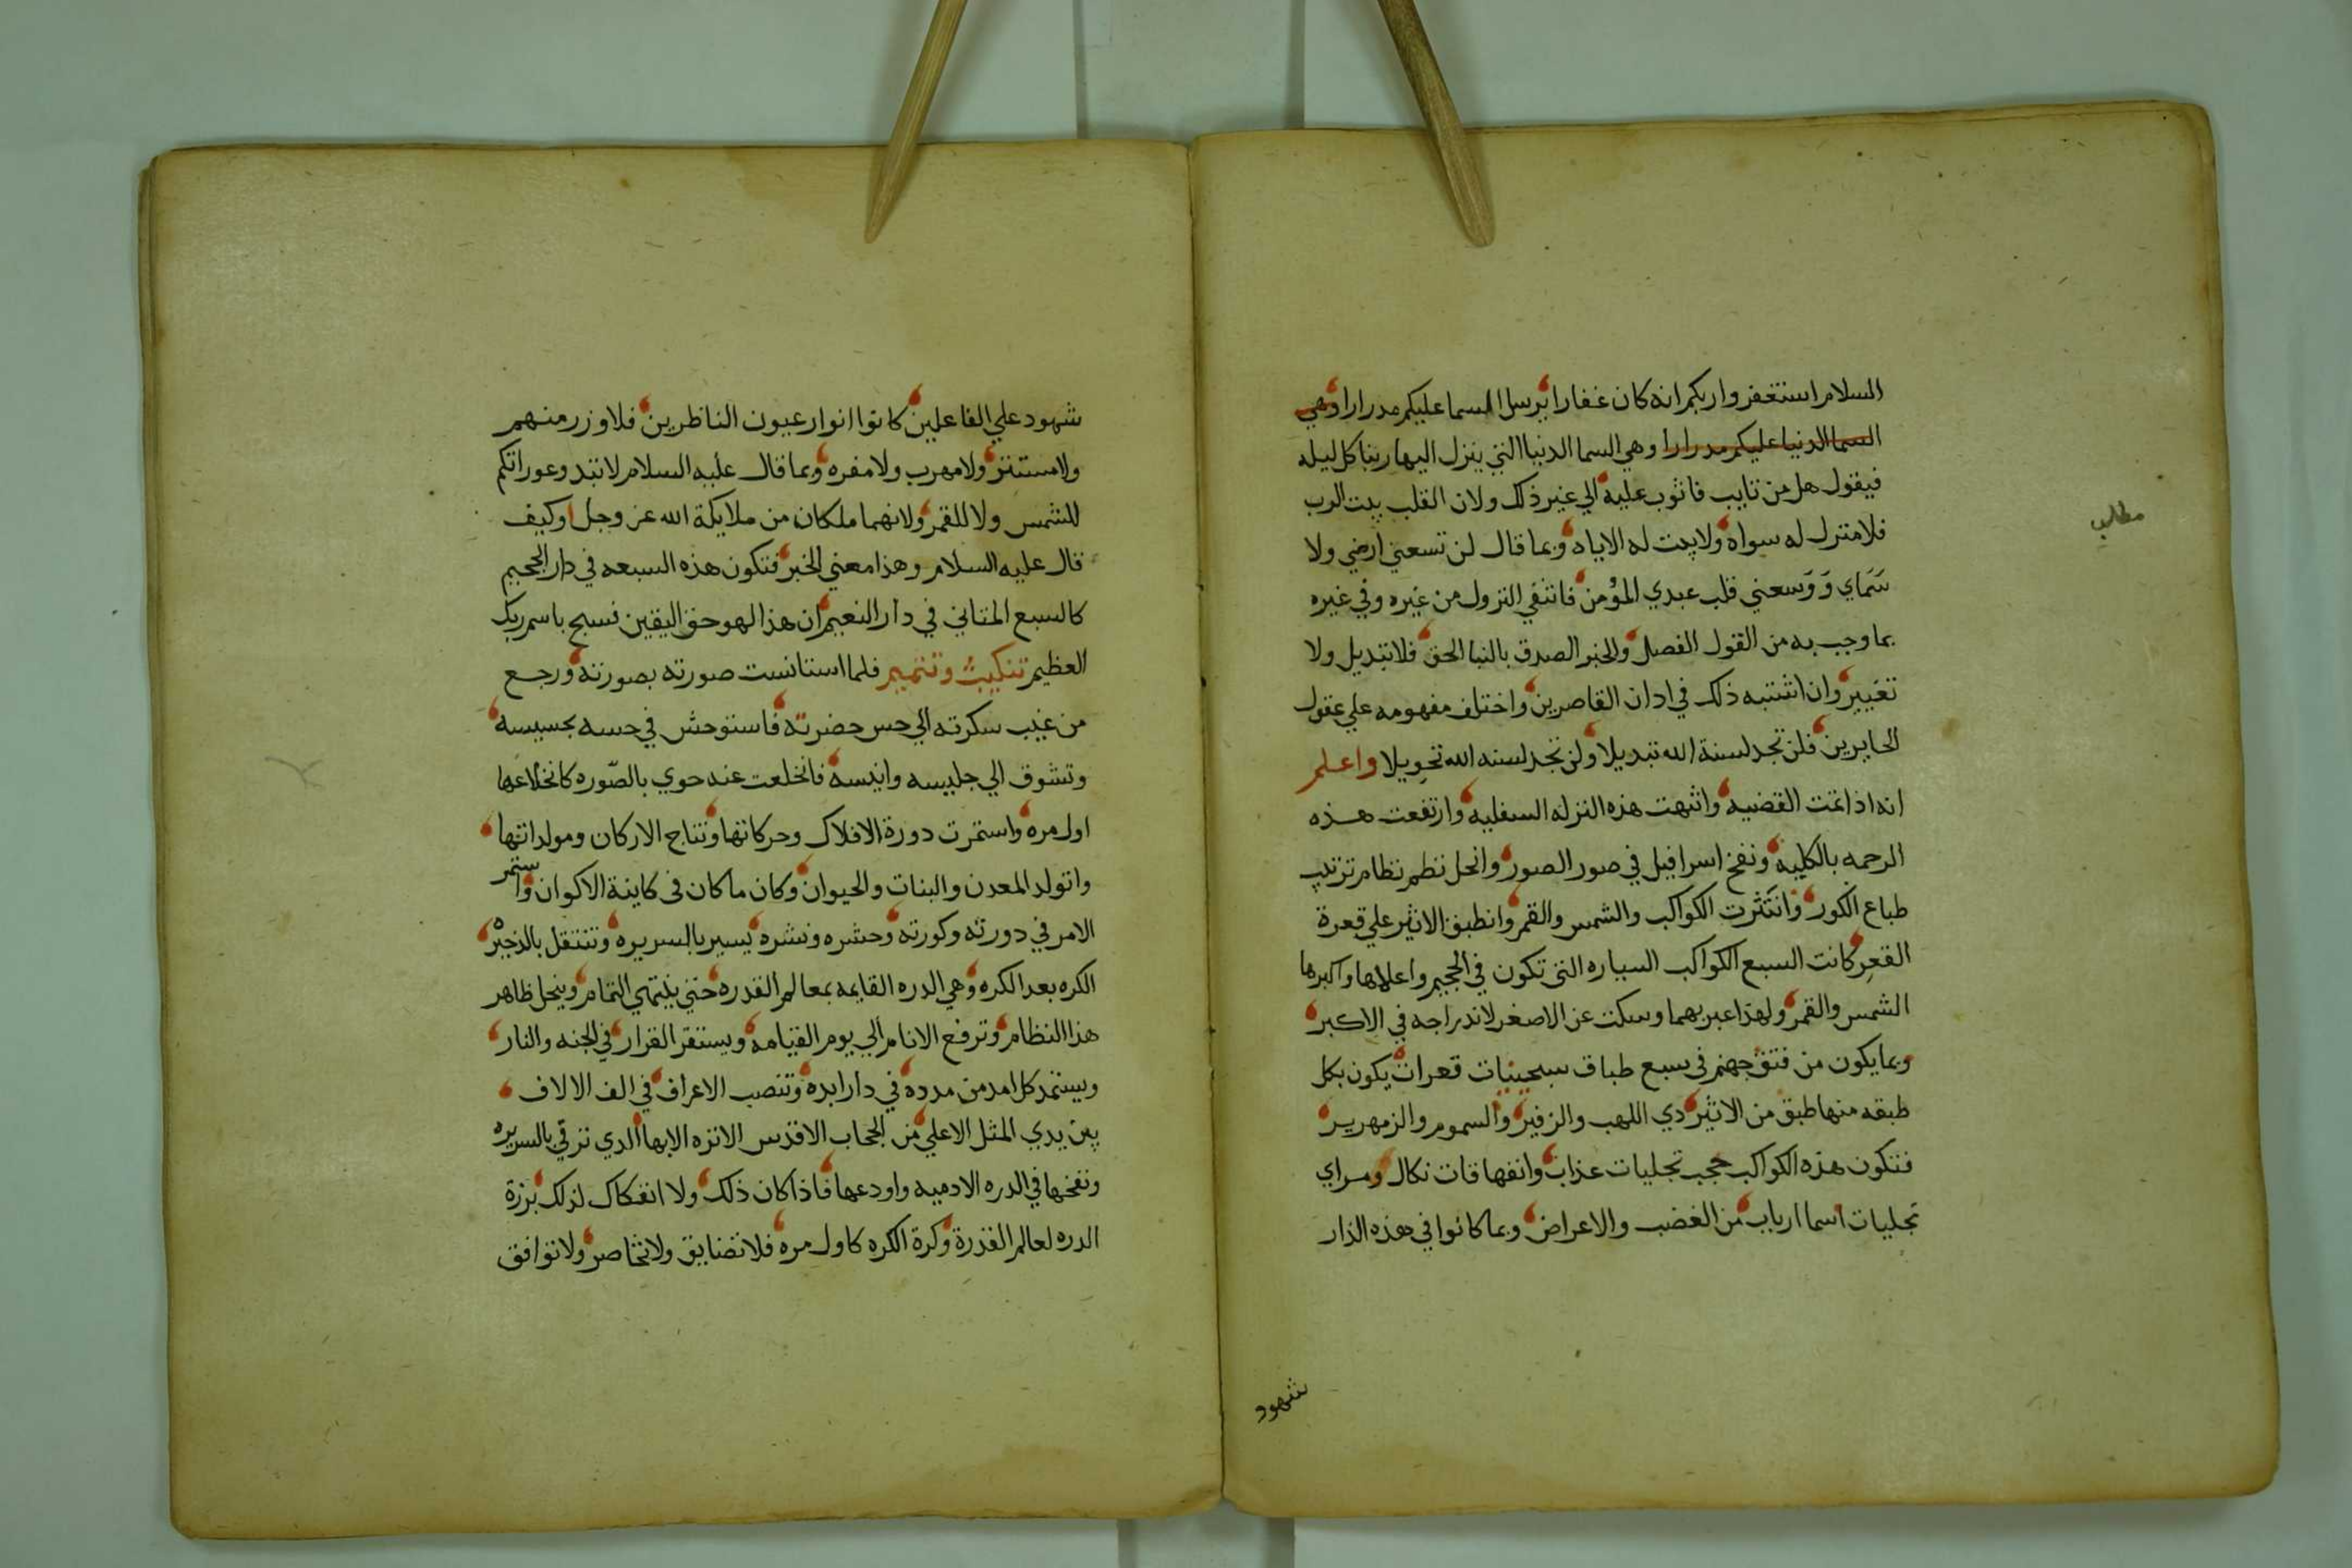 السلام استغفروا ربكم انه كان غفارا يرسل السما عليكم مدرارا وهي
السما الدنيا عليكم مدرارا وهي السما الدنيا التي ينزل اليها ربنا كل ليله
فيقول هل من تايب فاتوب عليه الي غير ذلك ولان القلب بيت الرب
فلا منزل له سواه ولا بيت له الا اياه وبما قال لن تسعني ارضي ولا
سَمَاي وَوَسعني قلب عبدي المؤمن فانتفي النزول من غيره وفي غيره
بما وجب به من القول الفصل والخبر الصدق بالنبا الحق فلا تبديل ولا
تغيير وان اشتبه ذلك في ادان القاصرين واختلف مفهومه علي عقول
الحايرين فلن تجد لسنة الله تبديلا ولن تجد لسنه الله تحويلا واعلم
انه اذا تمت القضيه وانتهت هذه النزله السفليه وارتفعت هذه
الرحمه بالكليه ونفخ اسرافيل في صور الصور وانحل نظم نظام ترتيب
طباع الكور وانتثرت الكواكب والشمس والقمر وانطبق الاثير علي قعرة
القعر كانت السبع الكواكب السياره التي تكون في الجحيم واعلاها واكبرها
الشمس والقمر ولهذا عبر بهما وسكت عن الاصغر لاندراجه في الاكبر
وبما يكون من فتق جهنم في سبع طباق سجينيات قعرات يكون بكل
طبقه منها طبق من الاثير دي اللهب والزفير والسموم والزمهرير
فتكون هذه الكواكب حجب تجليات عذاب وانفهاقات نكال ومراي
تجليات اسما ارباب من الغضب والاعراض وبما كانوا في هذه الدار
شهود
مطلب
شهود علي الفاعلين كانوا انوار عيون الناظرين فلا وزر منهم
ولا مستتر ولا مهرب ولا مفره وبما قال عليه السلام لا تبدوعوراتكم
للشمس ولا للقمر ولانهما ملكان من ملايكة الله عز وجل اوكيف
قال عليه السلام وهذا معني الخبر فتكون هذه السبعه في دار الجحيم
كالسبع المثاني في دار النعيم ان هذا لهو حق اليقين فسبح باسم ربك
العظيم تنكيت وتتميم فلما استانست صورته بصورته ورجع
من غيب سكرته الي حس حضرته فاستوحش في حسه بحسيسه
وتشوق الي جليسه وانيسه فانخلعت عنه حوي بالصّوره كانخلاعها
اول مره واستمرت دورة الافلاك وحركاتها ونتاج الاركان ومولداتها
واتولد المعدن والنبات والحيوان وكان ما كان في كاينة الاكوان واستمر
الامر في دورته وكورته وحشره ونشره يسير بالسريره وتنتقل بالذخيره
الكره بعد الكره وهي الدره القايمه بمعالم القدره حتي ينتهي التمام وينحل ظاهر
هذا النظام وترفع الانام الي يوم القيامه ويستقر القرار في الجنه والنار
ويستمد كل امد من مدده في دار ابده وتنصب الاعراف في الف الالاف
بين يدي المثل الاعلي من الحجاب الاقدس الانزه الابها الدي ترقي بالسريره
ونفخها في الدره الادميه واودعها فاذا كان ذلك ولا انفكاك لذلك بزرة
الدره لعالم القدرة وكرة الكره كاول مره فلا تضايق ولا تخاصر ولا توافق